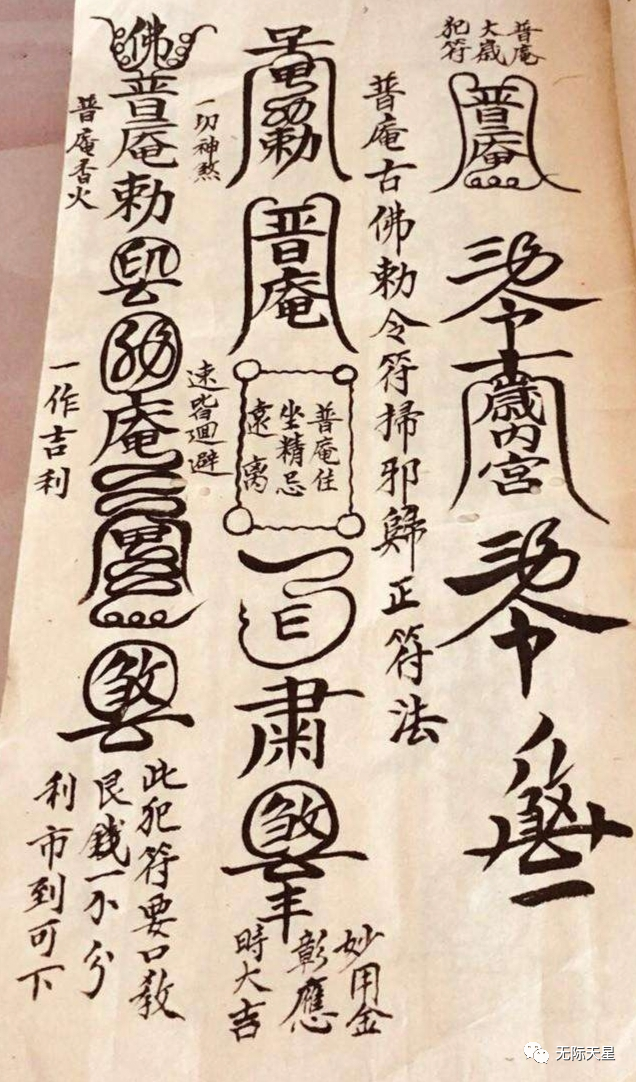 普庵
大歲
犯符
普庵
勅令
歲內宮
勅令
普庵古佛勅令符掃邪歸正符法
勅
普庵
普庵住
坐精忌
遠离
肅
煞
妙用金
彰應
時大吉
一切神煞
速皆迴避
佛
普庵勅
印
庵
煞
此犯符要口教
艮錢一分
利市到可下
普庵香火
一作吉利
无际天星